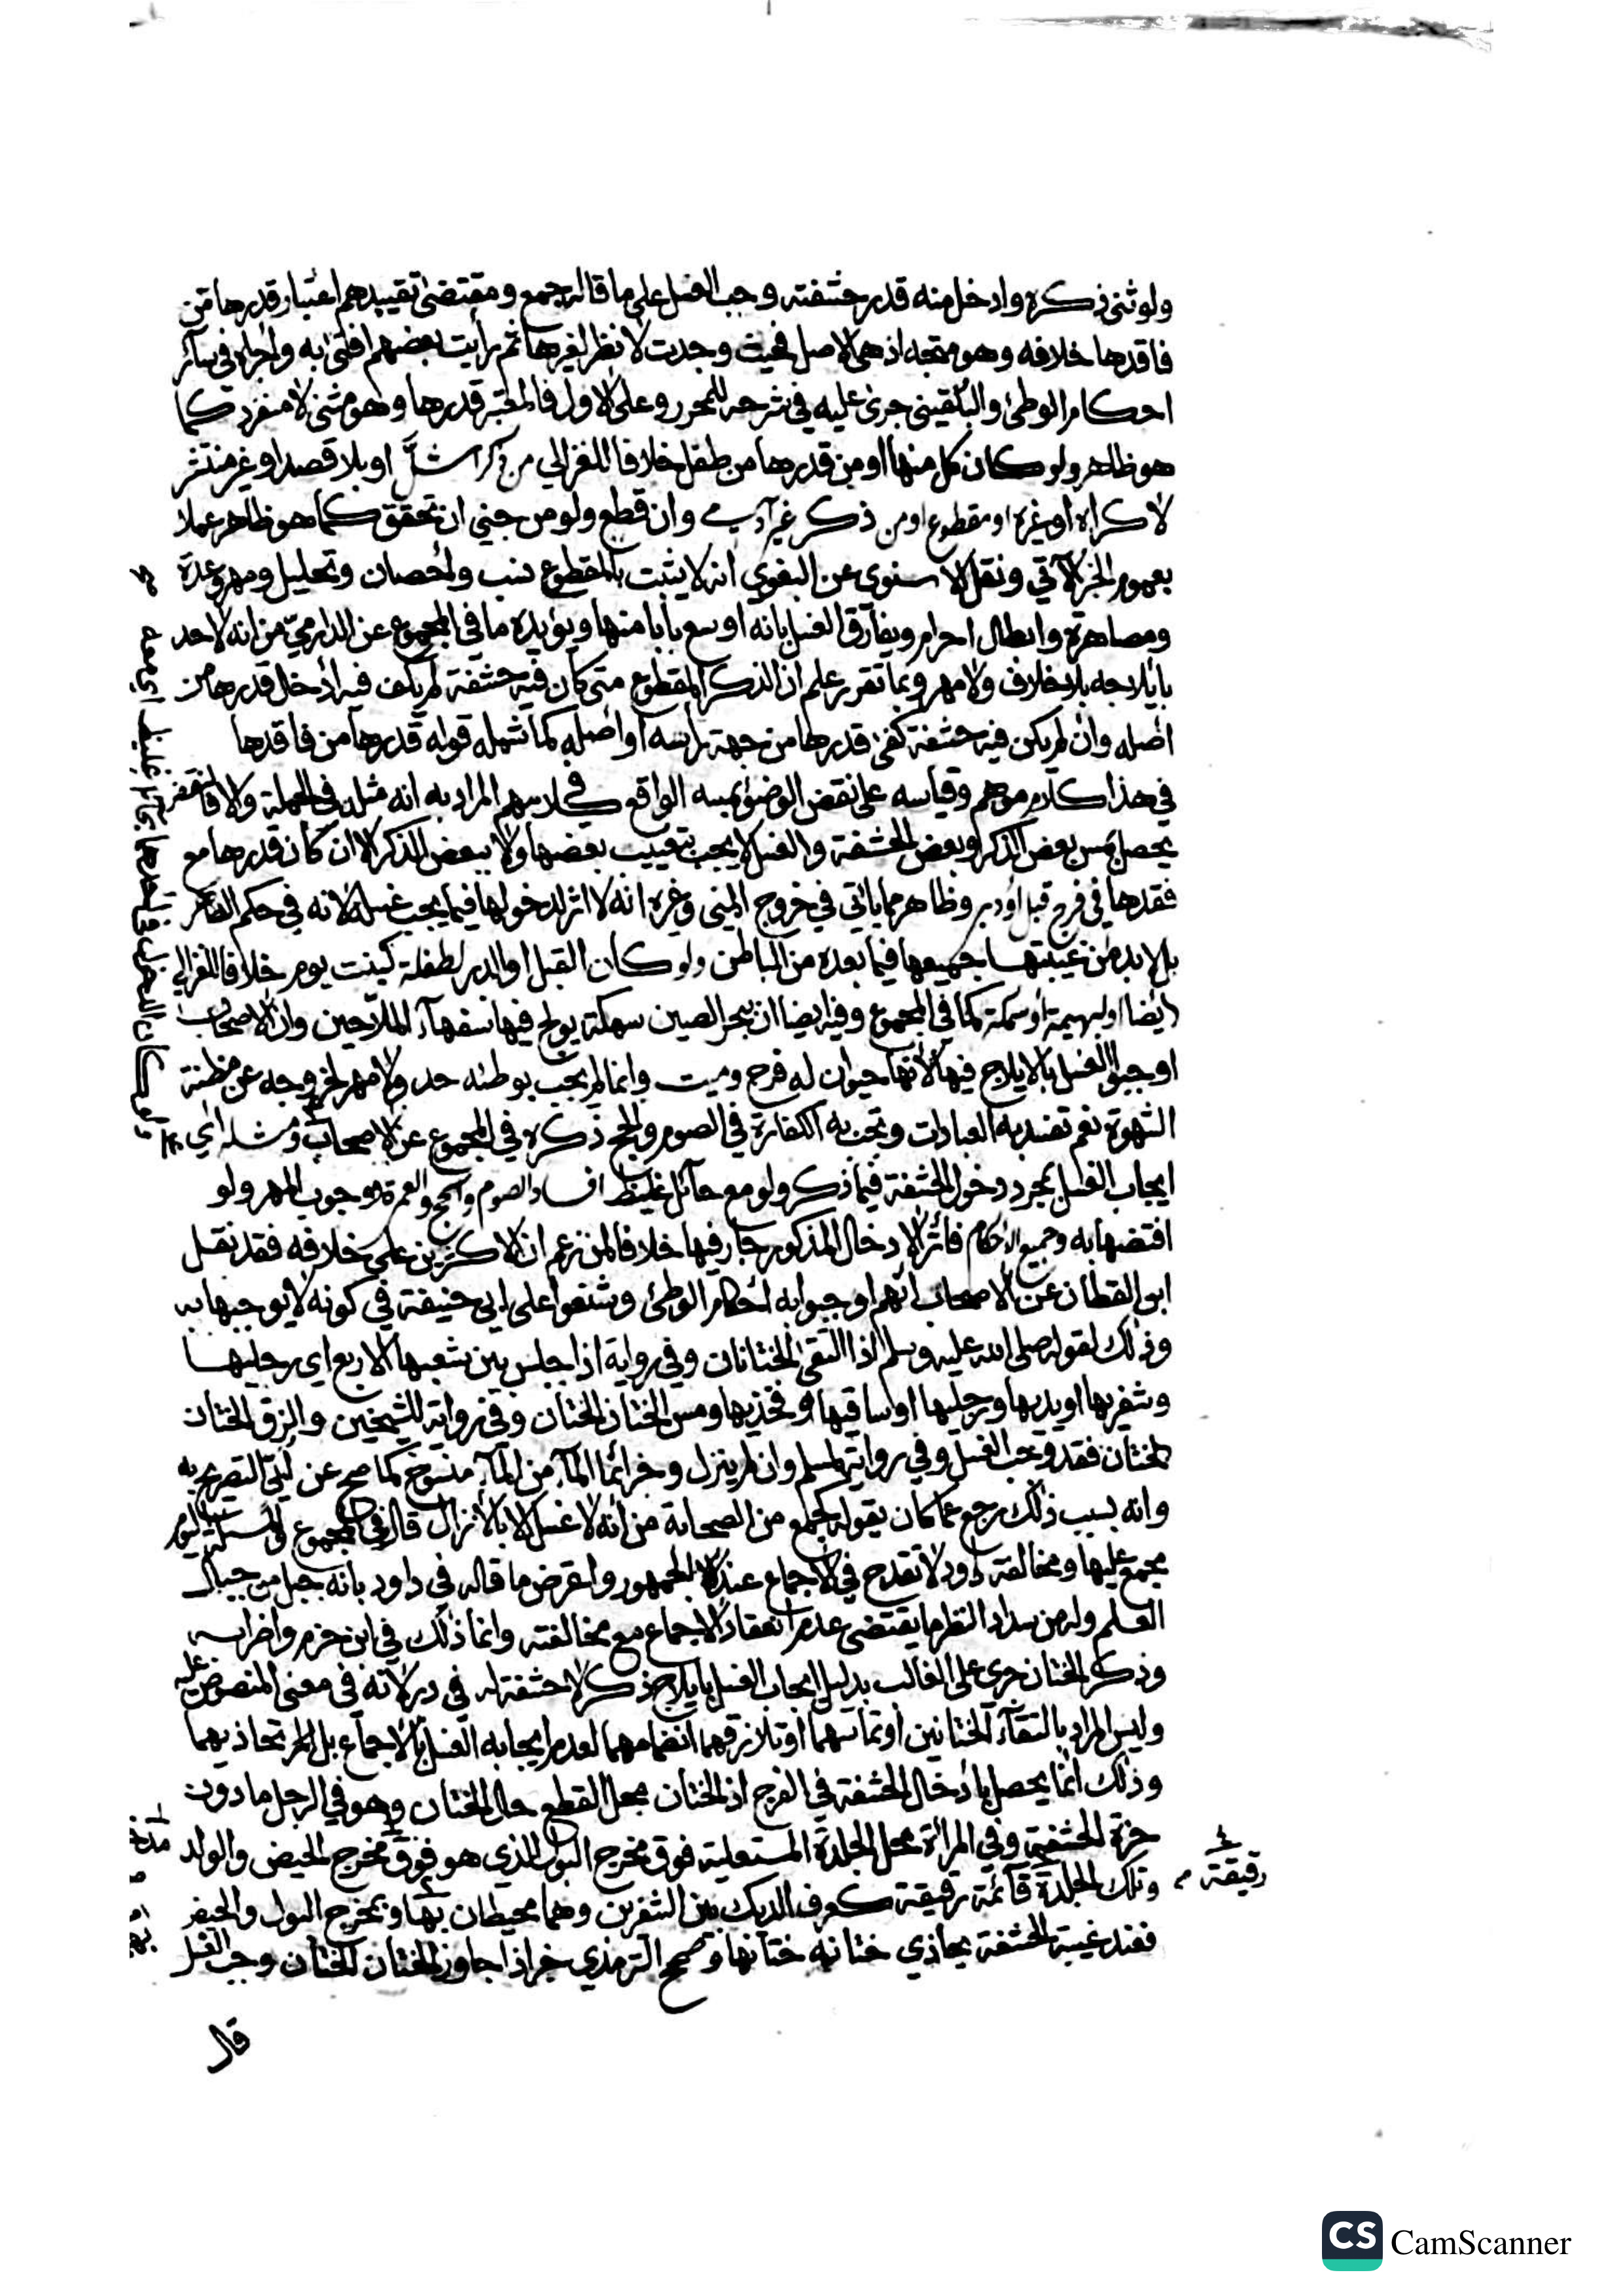 ولو ثنى ذكره وادخل منه قدر حشفته وجب الغسل على ما قاله جمع ومقتضى تقييدهم اعتبار قدرها من
فاقدها خلافه وهو متجه اذ هي الاصل فحيث وجدت لا نظر لغيرها ثم رايت بعضهم افتى به واجراه في سائر
احكام الوطئ والبلقيني جرى عليه في شرحه للمحرر وعلى الاول فالمعتبر قدرها وهو مثنى لا منفرد كما
هو ظاهر ولو كان كل منهما او من قدرها من طفل خلافا للغزالي من ذكر اشل او بلا قصد او غير منتشر
لاكراه او غيره او مقطوع او من ذكر غير آدمي وان قطع ولو من جني ان تحقق كما هو ظاهر عملا
بعموم الخبر الآتي ونقل الاسنوي عن البغوي انه لا يثبت بالمقطوع نسب واحصان وتحليل ومهر وعدة
ومصاهرة وابطال احرام ويفارق الغسل بانه اوسع بابا منها ويؤيده ما في المجموع عن الدارمي من انه لا حد
بايلاجه بلا خلاف ولا مهر وبما تقرر علم ان الذكر المقطوع متى كان فيه حشفة لم يكف فيه ادخل قدرها من
اصله وان لم يكن فيه حشفة كفى قدرها من جهة راسه او اصله كما شمله قوله قدرها من فاقدها
في هذا كلام موهم وقياسه على نقض الوضوء بمسه الواقع في كلامهم المراد به انه مثله في الجملة والا فالنقض
يحصل بمس بعض الذكر وبعض الحشفة والغسل لا يجب بتغييب بعضها ولا ببعض الذكر الا ان كان قدرها مع
فقدها في فرج قبل او دبر وظاهر مما ياتي في خروج المني وغيره انه لا اثر لدخولها فيما يجب غسله لانه في حكم الظاهر
بل لا بد من غيبتها جميعها فيما بعده من الباطن ولو كان القبل او الدبر لطفلة كبنت يوم خلافا للغزالي
ايضا او لبهيمة او سمكة كما في المجموع وفيه ايضا ان ببحر الصين سمكة يولج فيها سفهاء الملاحين وان الاصحاب
اوجبوا الغسل بالايلاج فيها لانها حيوان له فرج وميت وانما لم يجب بوطئه حد ولا مهر لخروجه عن مظنة
الشهوة نعم تفسد به العبادات وتجب به الكفارة في الصوم والحج ذكره في المجموع عن الاصحاب ومثله اي
ايجاب الغسل بمجرد دخول الحشفة فيما ذكر ولو مع حائل غليظ افساد الصوم والحج والعمرة به وجوب المهر ولو
افتضها به وجميع الاحكام فاثر الادخال المذكور جار فيها خلافا لمن زعم ان الاكثرين على خلافه فقد نقل
ابن القطان عن الاصحاب انهم اوجبوا به احكام الوطئ وشنعوا على ابي حنيفة في كونه لا يوجبها به
وذلك لقوله صلى الله عليه وسلم اذا التقى الختانان وفي رواية اذا جلس بين شعبها الاربع اي رجليها
وشفريها او يديها ورجليها او ساقيها او فخذيها ومس الختان الختان وفي رواية للشيخين والزق الختان
الختان فقد وجب الغسل وفي رواية لمسلم وان لم ينزل وخبر انما الماء من الماء منسوخ كما صح عن ابي التصريح به
وانه بسبب ذلك رجع عما كان يقوله كجمع من الصحابة من انه لا غسل الا بالانزال قال في المجموع والمسئلة اليوم
مجمع عليها ومخالفة داود لا تقدح في الاجماع عند الجمهور واعترض ما قاله في داود بانه جبل من جبال
العلم وله من سداد النظر ما يقتضي عدم انعقاد الاجماع مع مخالفته وانما ذلك في ابن حزم واضرابه
وذكر الختان جرى على الغالب بدليل ايجاب الغسل بايلاج ذكر لا حشفة له في دبر لانه في معنى المنصوص عليه
وليس المراد بالتقاء الختانين او تماسهما او تلازقهما انضمامهما لعدم ايجابه الغسل بالاجماع بل المراد تحاذيهما
وذلك انما يحصل بادخال الحشفة في الفرج اذ الختان محل القطع حال الختان وهو في الرجل ما دون
حزة الحشفة وفي المرأة محل الجلدة المستعلية فوق مخرج البول الذي هو فوق مخرج الحيض والولد
وتلك الجلدة قائمة رقيقة كعرف الديك بين الشفرين وهما محيطان بها وبمخرج البول والحيض
فعند غيبة الحشفة يحاذي ختانه ختانها وصحح الترمذي خبر اذا جاوز الختان الختان وجب الغسل
رقيقة
قال
CS CamScanner